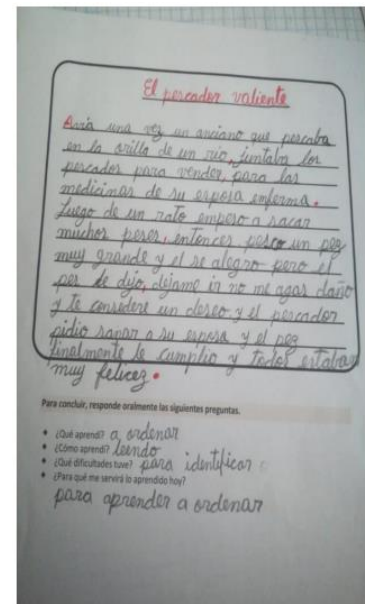 El pescador valiente
Avia una vez un anciano que pescaba
en la orilla de un rio, juntaba los
pescados para vender, para las
medicinas de su esposa enferma.
Luego de un rato empeso a sacar
muchos peses, entonces pesco un pez
muy grande y el se alegro pero el
pes le dijo, dejame ir no me agas daño
y te consedere un deseo y el pescador
pidio sanar a su esposa y el pez
finalmente le cumplio y todos estaban
muy felicez.
Para concluir, responde oralmente las siguientes preguntas.
• ¿Qué aprendí? a ordenar
• ¿Cómo aprendí? leendo
• ¿Qué dificultades tuve? para identificar
• ¿Para qué me servirá lo aprendido hoy?
para aprender a ordenar